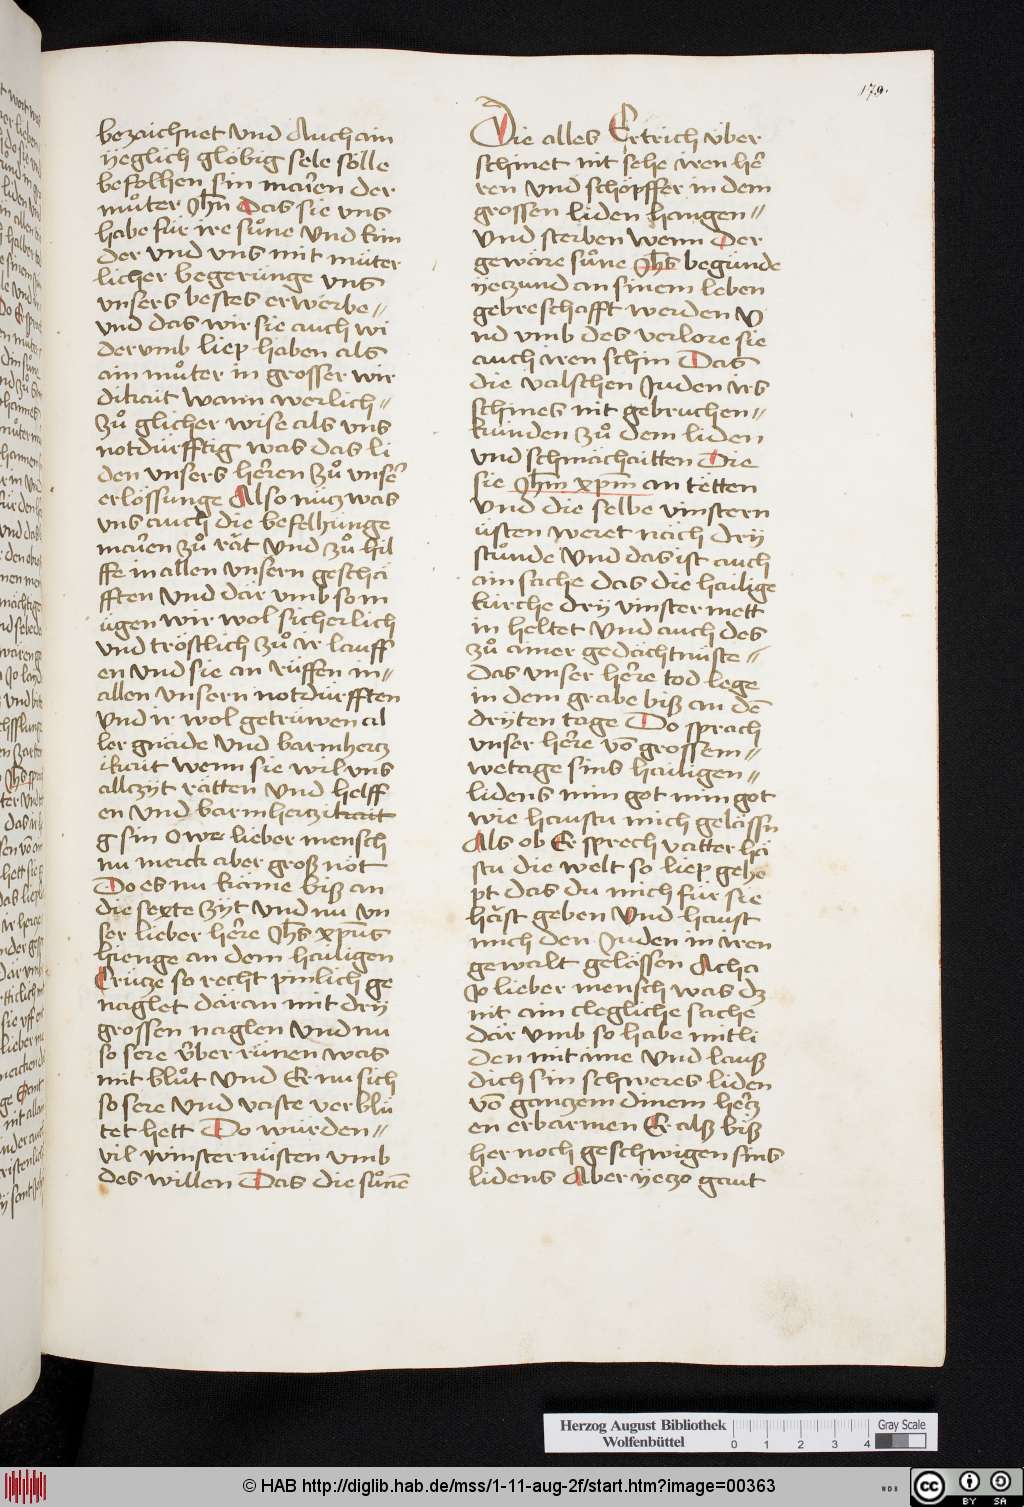 179.
bezaichnet vnd Auch ain
ÿeglich glöbig sele sölle
befolhen sin marien der
můter Jhū Das sie vns
habe für ire sůne vnd kin
der vnd vns mit müter
licher begerünge vns
vnsers bestes erwerbe〃
vnd das wir sie auch wi
der vmb liep haben als
ain můter in grosser wir
dikait wann werlich〃
zů glicher wise als vns
notdürfftig was das li
den vnsers herren zů vnsr̄
erlössunge Also nücz was
vns auch die befelhunge
marien zů rät vnd zů hil
ffe in allen vnsern geschä
fften vnd där vmb so m
ügen wir wol sicherlich
vnd tröstlich zů ir lauff
en vnd sie an rüffen in〃
allen vnsern notdürfften
vnd ir wol getrüwen al
ler gnäde vnd barmhercz
ikait wenn sie wil vns
allczÿt rätten vnd helff
en vnd barmherzikait
g sin O we lieber mensch
nu merck aber groß nöt
Do es nu käme biß an
die sexte zÿt vnd nu vn
ser lieber her̄re Jhs̄ xpūs
hienge an dem hailigen
Crücze so recht pinlich ge
naglet däran mit drÿ
grossen naglen vnd nu
so sere v̈ber rünen was
mit blůt vnd Er nu sich
so sere vnd vaste verblü
tet hett Do würden〃
vil winsternüsten vmb
des willen Das die sůnē
Die alles Ertrich über
schinet nit sehe iren her̄
ren vnd schöpffer in dem
grossen liden hangen〃
vnd sterben wenn Der
gewäre sůne Jhs̄ begünde
ÿeczund an sinem leben
gebreschafft werden v
nd vmb des verlore sie
auch iren schin Das
die valschen Juden irs
schines nit gebruchen〃
künden zů dem liden
vnd schmächaitten Die
sie Jhm̄ xpm̄ an tetten
vnd die selbe vinstern
üsten weret näch drÿ
stůnde vnd das ist auch
ain sache das die hailige
kirche drÿ vinster mett
in heltet vnd auch des
zů ainer gedächtnüste〃
das vnser her̄re tod lege
in dem grabe biß an dē
drÿten tage Do sprach
vnser her̄re vō grossem〃
wetage sins hailigen〃
lidens min got min got
wie haustu mich geläss̄n
Als ob Er sprech vatter hä
stu die welt so liep gehe
pt das du mich für sie
häst geben vnd haust
mich den Juden in iren
gewalt gelässen Acha
Jo lieber mensch was dz
nit ain clegliche sache
där vmb so habe mitli
den mit ime vnd lauß
dich sin schweres liden
vō ganczem dinem hercz
en erbarmen Er alß biß
her noch geschwigen sins
lidens Aber ÿeczo gaut
Herzog August Bibliothek
Wolfenbüttel
0 1 2 3 4
Gray Scale
© HAB http://diglib.hab.de/mss/1-11-aug-2f/start.htm?image=00363
WDB
cc BY SA